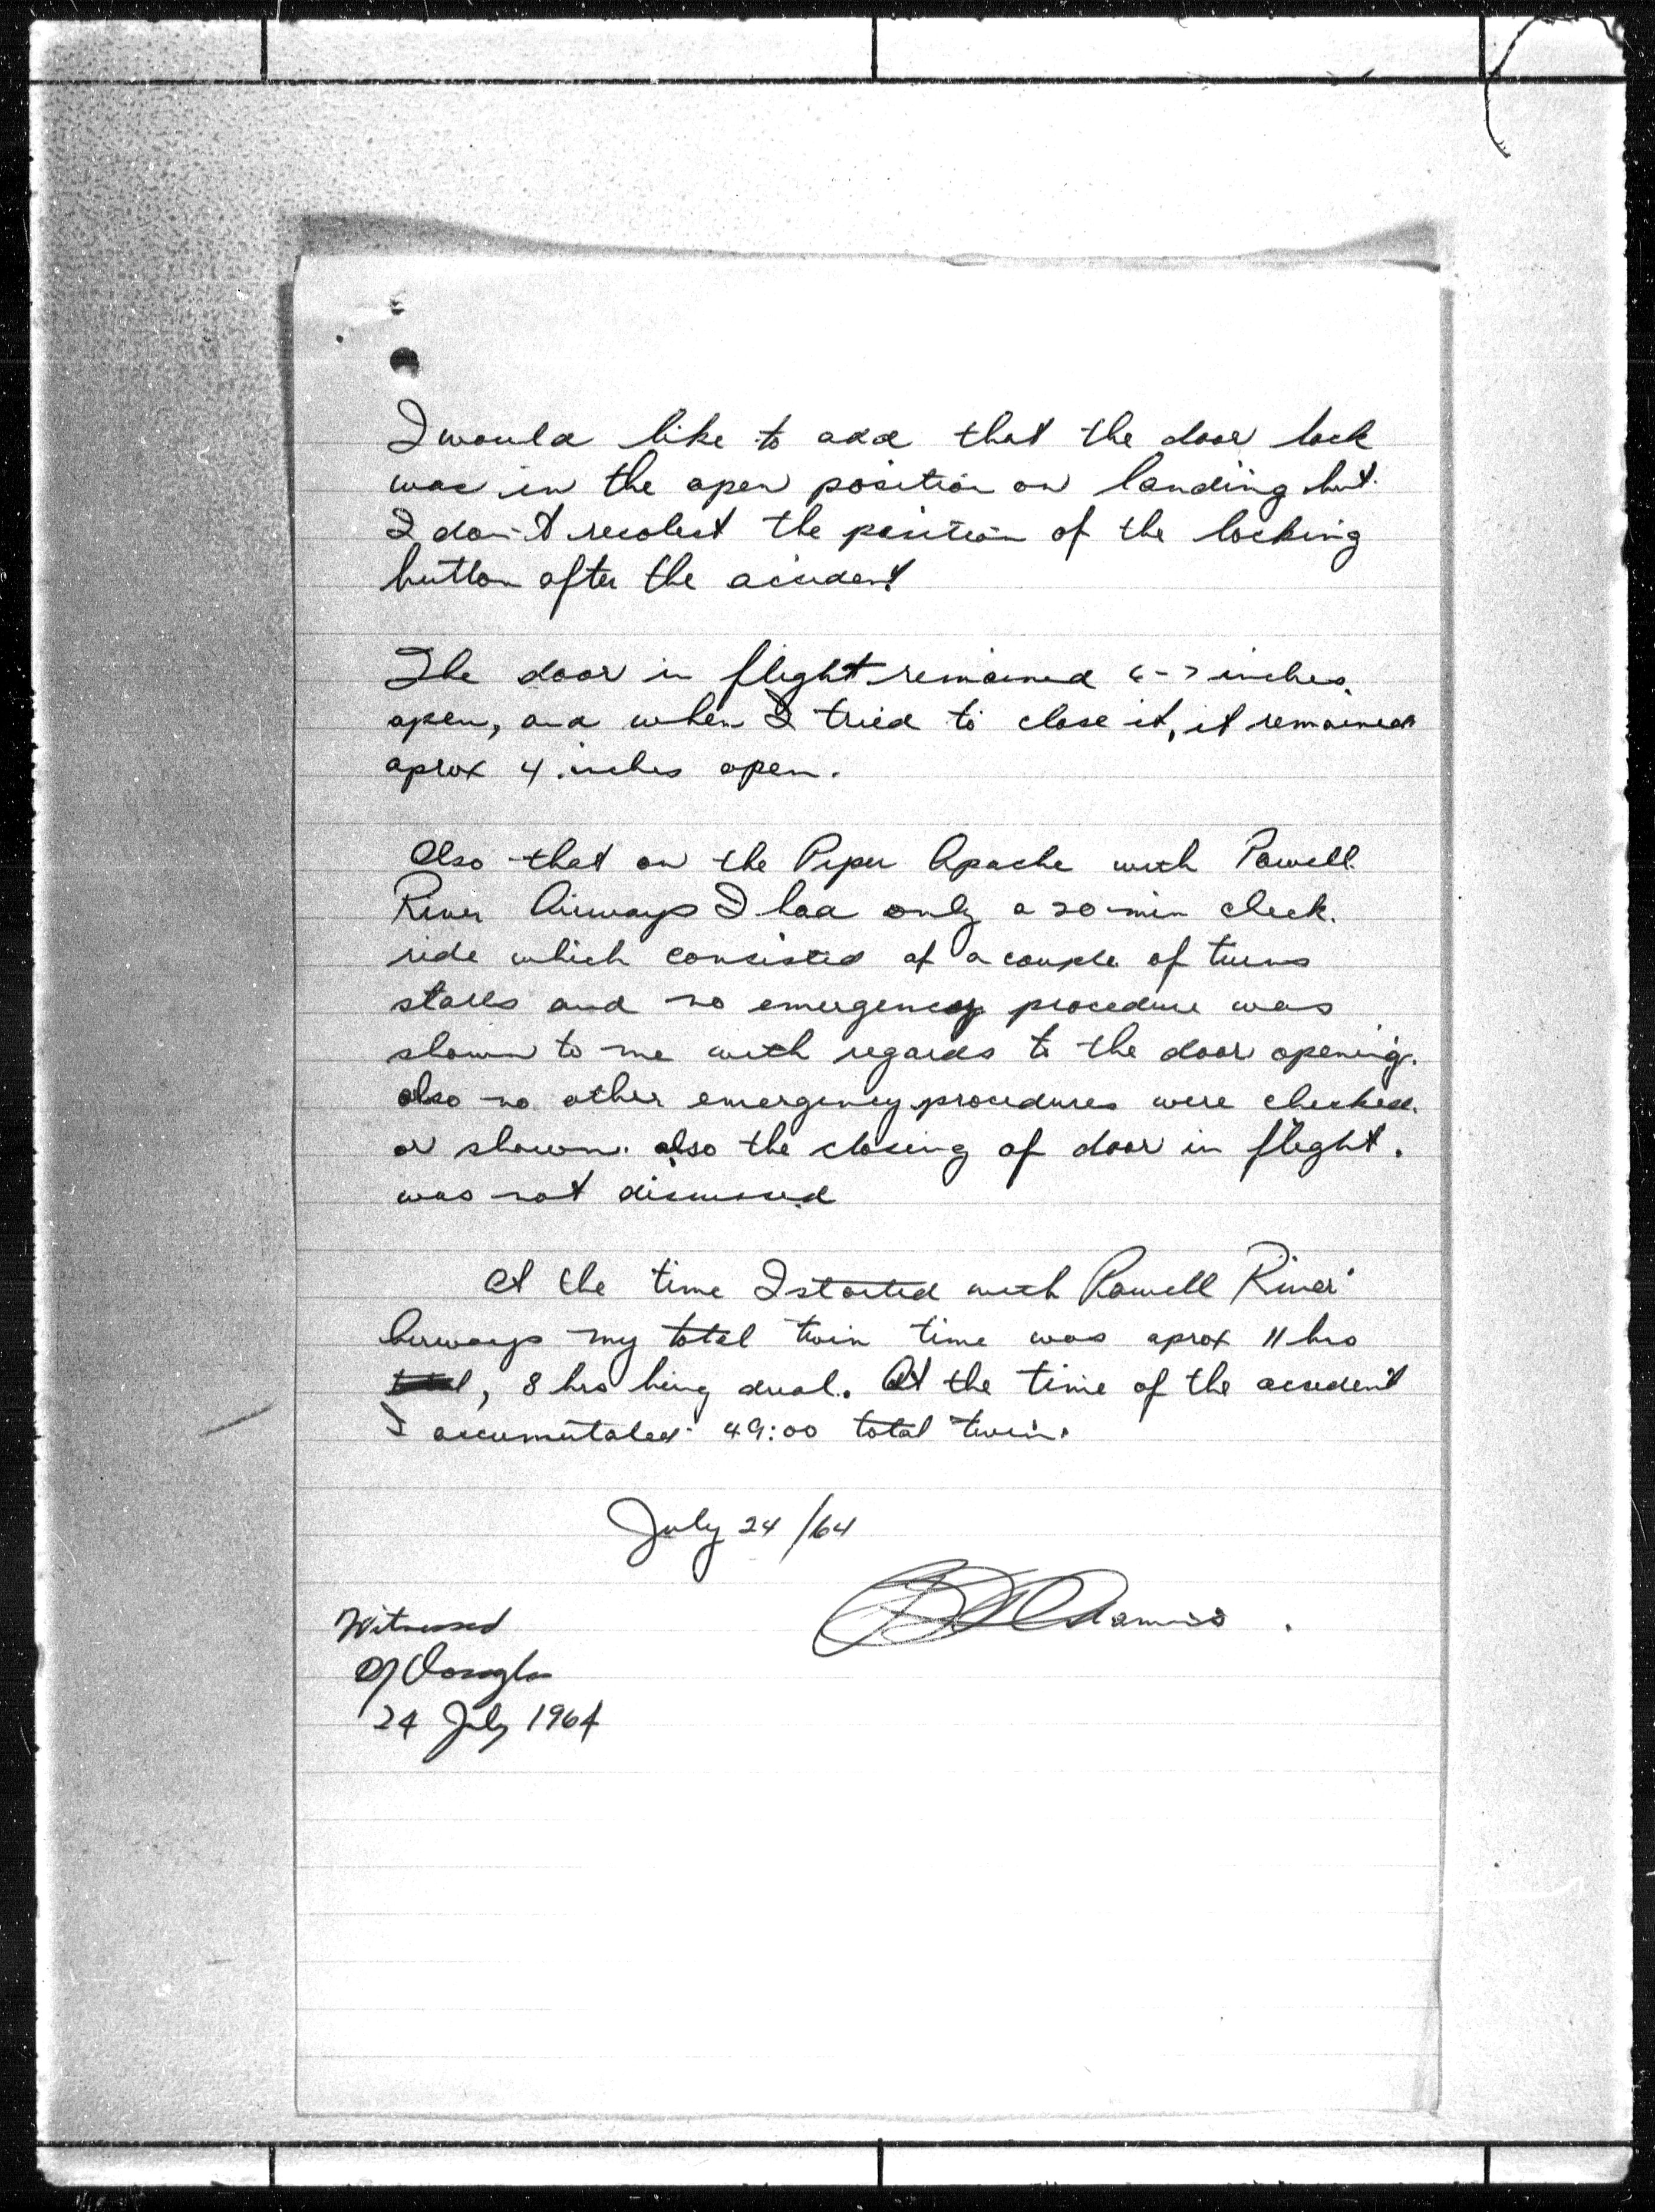 I would like to add that the door lock
was in the open position on landing but
I don't recolect the position of the locking
button after the accident
The door in flight remained 6-7 inches
open, and when I tried to close it, it remained
aprox 4 inches open.
Also that on the Piper Apache with Powell
River Airways I had only a 20 min check
ride which consisted of a couple of turns
stalls and no emergency procedure was
shown to me with regards to the door opening.
also no other emergency procedures were checked
or shown. also the closing of door in flight.
was not discussed
At the time I started with Powell River
Airways my total twin time was aprox 11 hrs
, 8 hrs being dual. At the time of the accident
I accumutaled 49:00 total twin.
July 24/64
Witnessed
24 July 1964